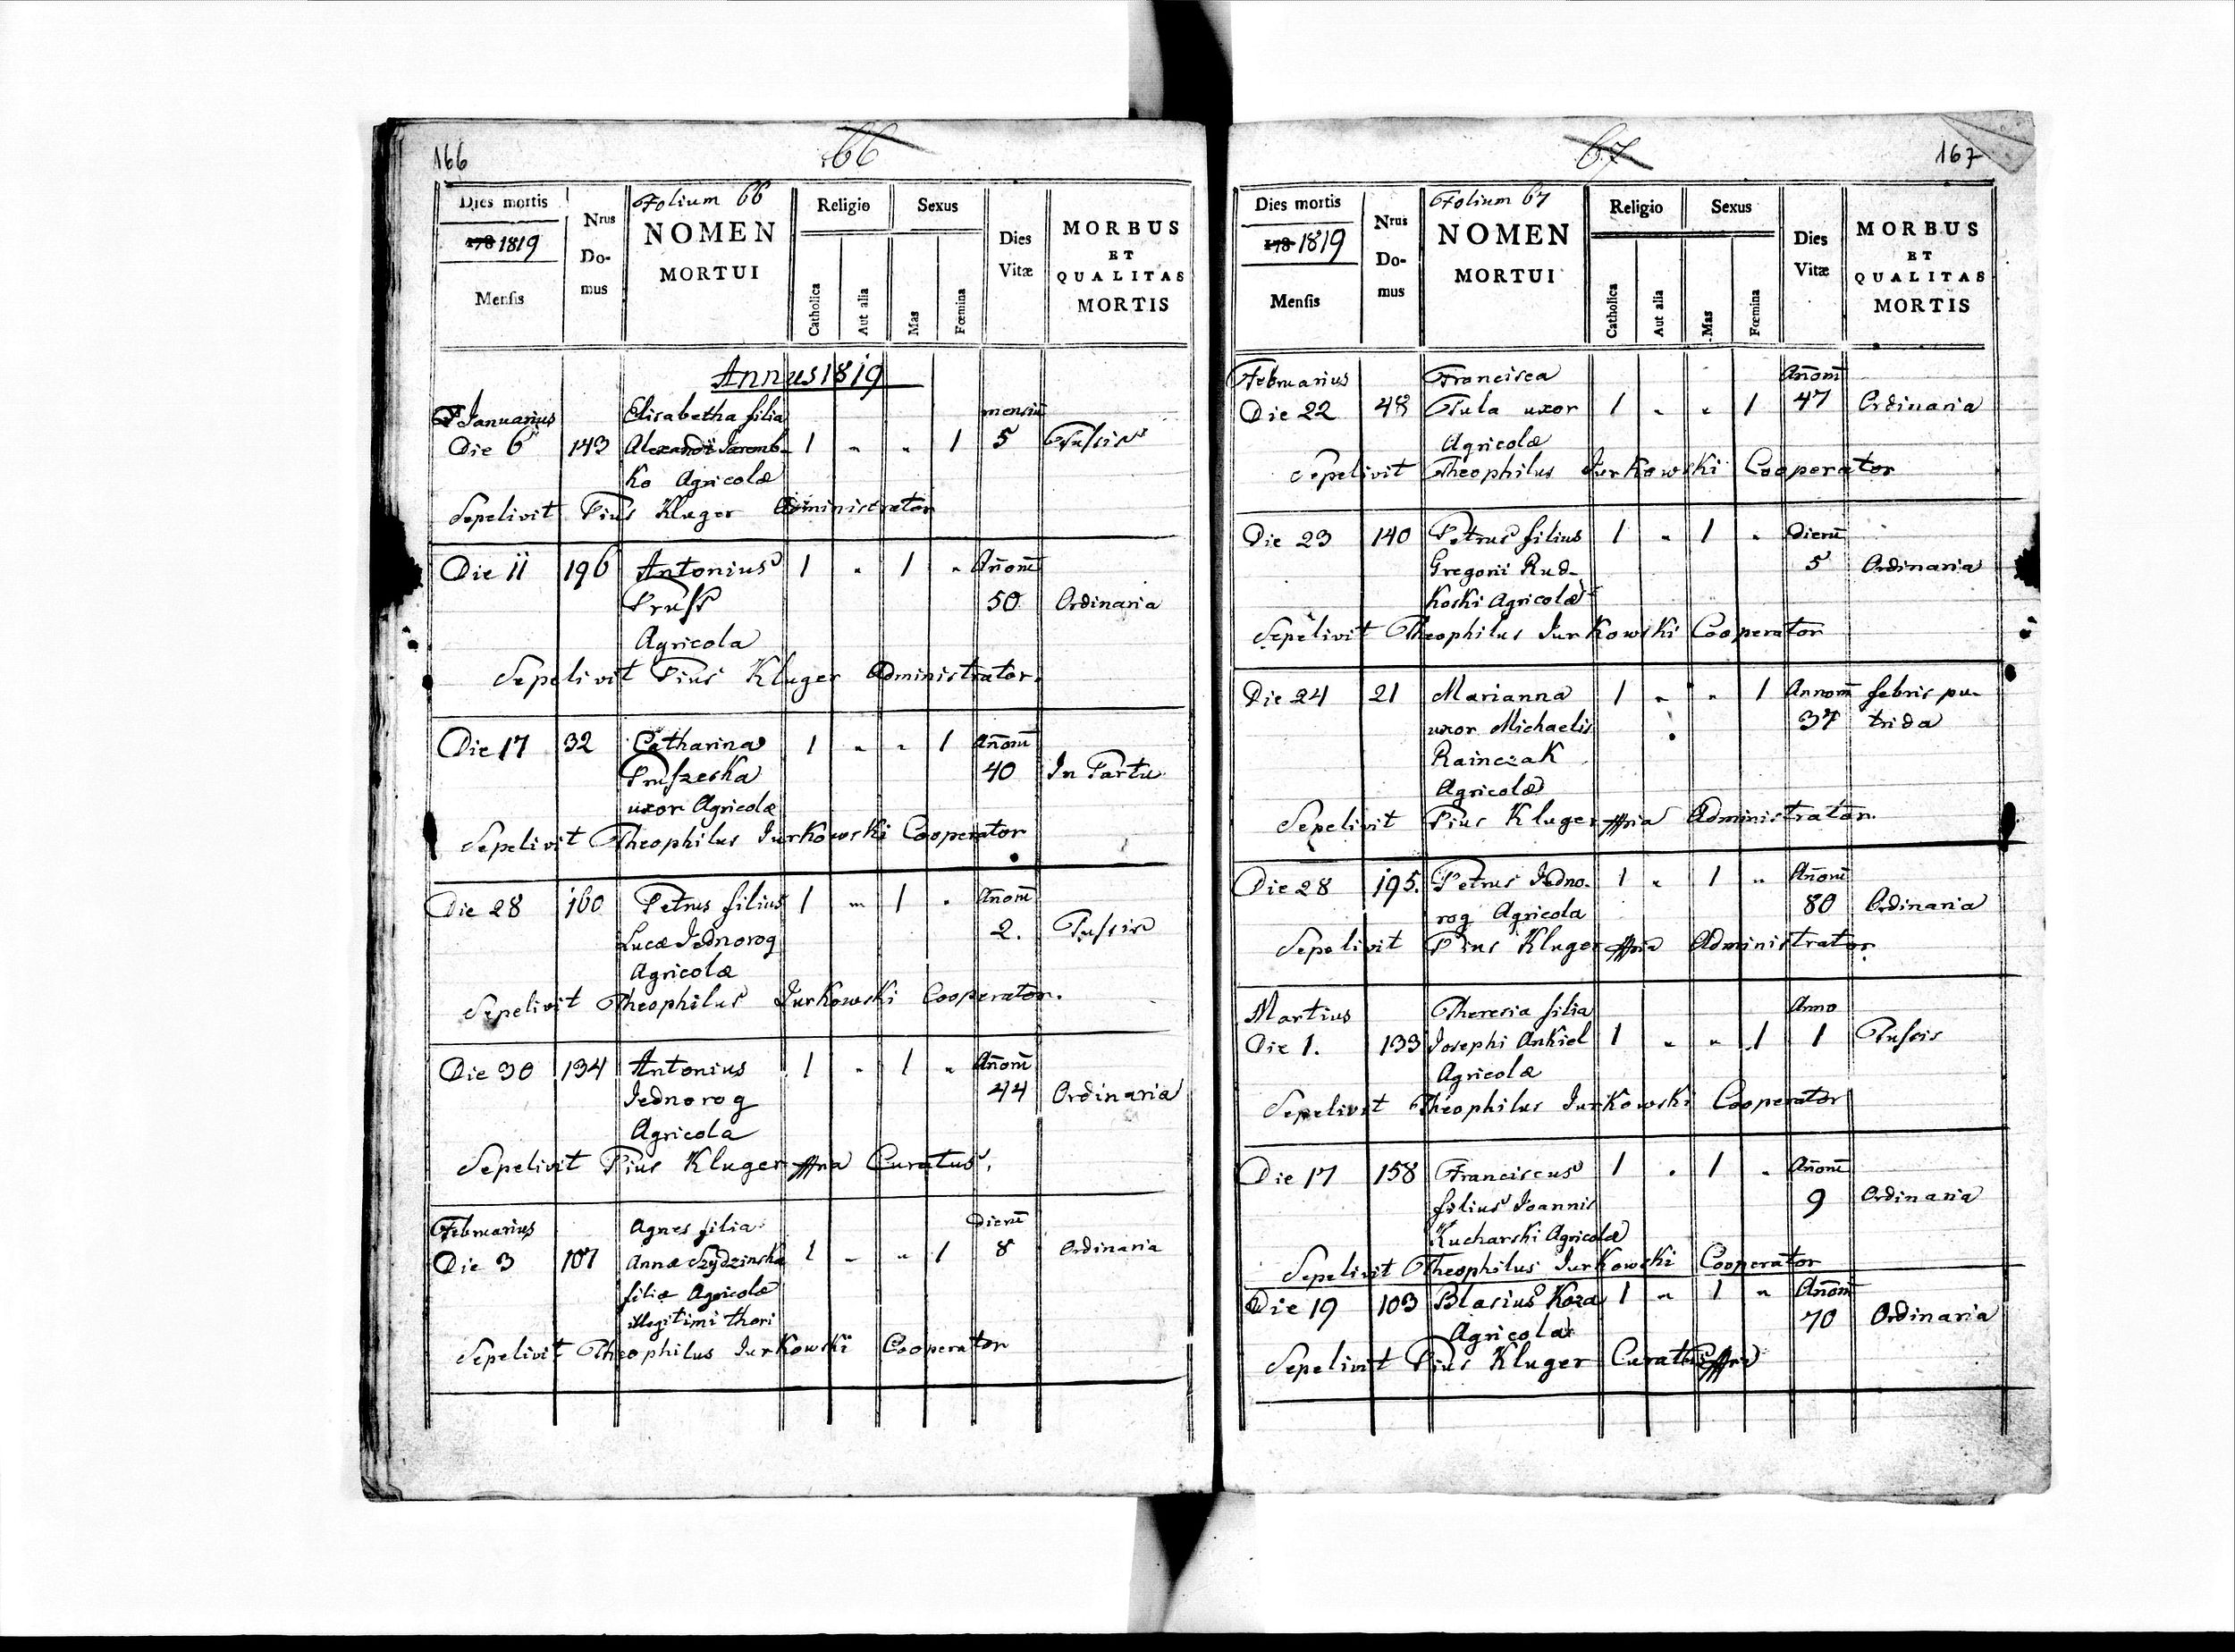 166
66
Dies mortis
178 1819
Mensis
Nrus
Do-
mus
Folium 66
NOMEN
MORTUI
Religio
Catholica
Aut alia
Sexus
Mas
Fœmina
Dies
Vitæ
MORBUS
ET
QUALITAS
MORTIS
Annus 1819
Januarius Elisabetha filia mensiū
Die 6 143 Alexandri Jaremb- 1 " " 1 5 Tussis
ko Agricolæ
Sepelivit Pius Kluger Administrator
Die 11 196 Antonius 1 " 1 " Añorū
Pruss 50 Ordinaria
Agricola
Sepelivit Pius Kluger Administrator.
Die 17 32 Catharina 1 " " 1 Añorū
Pruszeska 40 In Partu
uxor Agricolæ
Sepelivit Theophilus Jurkowski Cooperator
Die 28 160 Petrus filius 1 " 1 " Añorū
Lucæ Jednorog 2. Tussis
Agricolæ
Sepelivit Theophilus Jurkowski Cooperator.
Die 30 134 Antonius 1 " 1 " Añorū
Jednorog 44 Ordinaria
Agricola
Sepelivit Pius Kluger Curatus.
Februarius Agnes filia Dierū
Die 3 107 Annæ Szydzinska 1 " " 1 8 Ordinaria
filiæ Agricolæ
illegitimi thori
Sepelivit Theophilus Jurkowski Cooperator
67
167
Dies mortis
178 1819
Mensis
Nrus
Do-
mus
Folium 67
NOMEN
MORTUI
Religio
Catholica
Aut alia
Sexus
Mas
Fœmina
Dies
Vitæ
MORBUS
ET
QUALITAS
MORTIS
Februarius Francisca Añorū
Die 22 48 Tula uxor 1 " " 1 47 Ordinaria
Agricolæ
Sepelivit Theophilus Jurkowski Cooperator
Die 23 140 Petrus filius 1 " 1 " Dierū
Gregorii Rud- 5 Ordinaria
koski Agricolæ
Sepelivit Theophilus Jurkowski Cooperator
Die 24 21 Marianna 1 " " 1 Annorū febris pu-
uxor Michaelis 37 trida
Rainczak
Agricolæ
Sepelivit Pius Kluger Administrator.
Die 28 195. Petrus Jedno- 1 " 1 " Añorū
rog Agricola 80 Ordinaria
Sepelivit Pius Kluger Administrator.
Martius Theresia filia Anno
Die 1. 133 Josephi Ankiel 1 " " 1 1 Tussis
Agricolæ
Sepelivit Theophilus Jurkowski Cooperator
Die 17 158 Franciscus 1 " 1 " Añorū
filius Joannis 9 Ordinaria
Kucharski Agricolæ
Sepelivit Theophilus Jurkowski Cooperator
Die 19 103 Blasius Koza 1 " 1 " Añorū
Agricola 70 Ordinaria
Sepelivit Pius Kluger Curatus